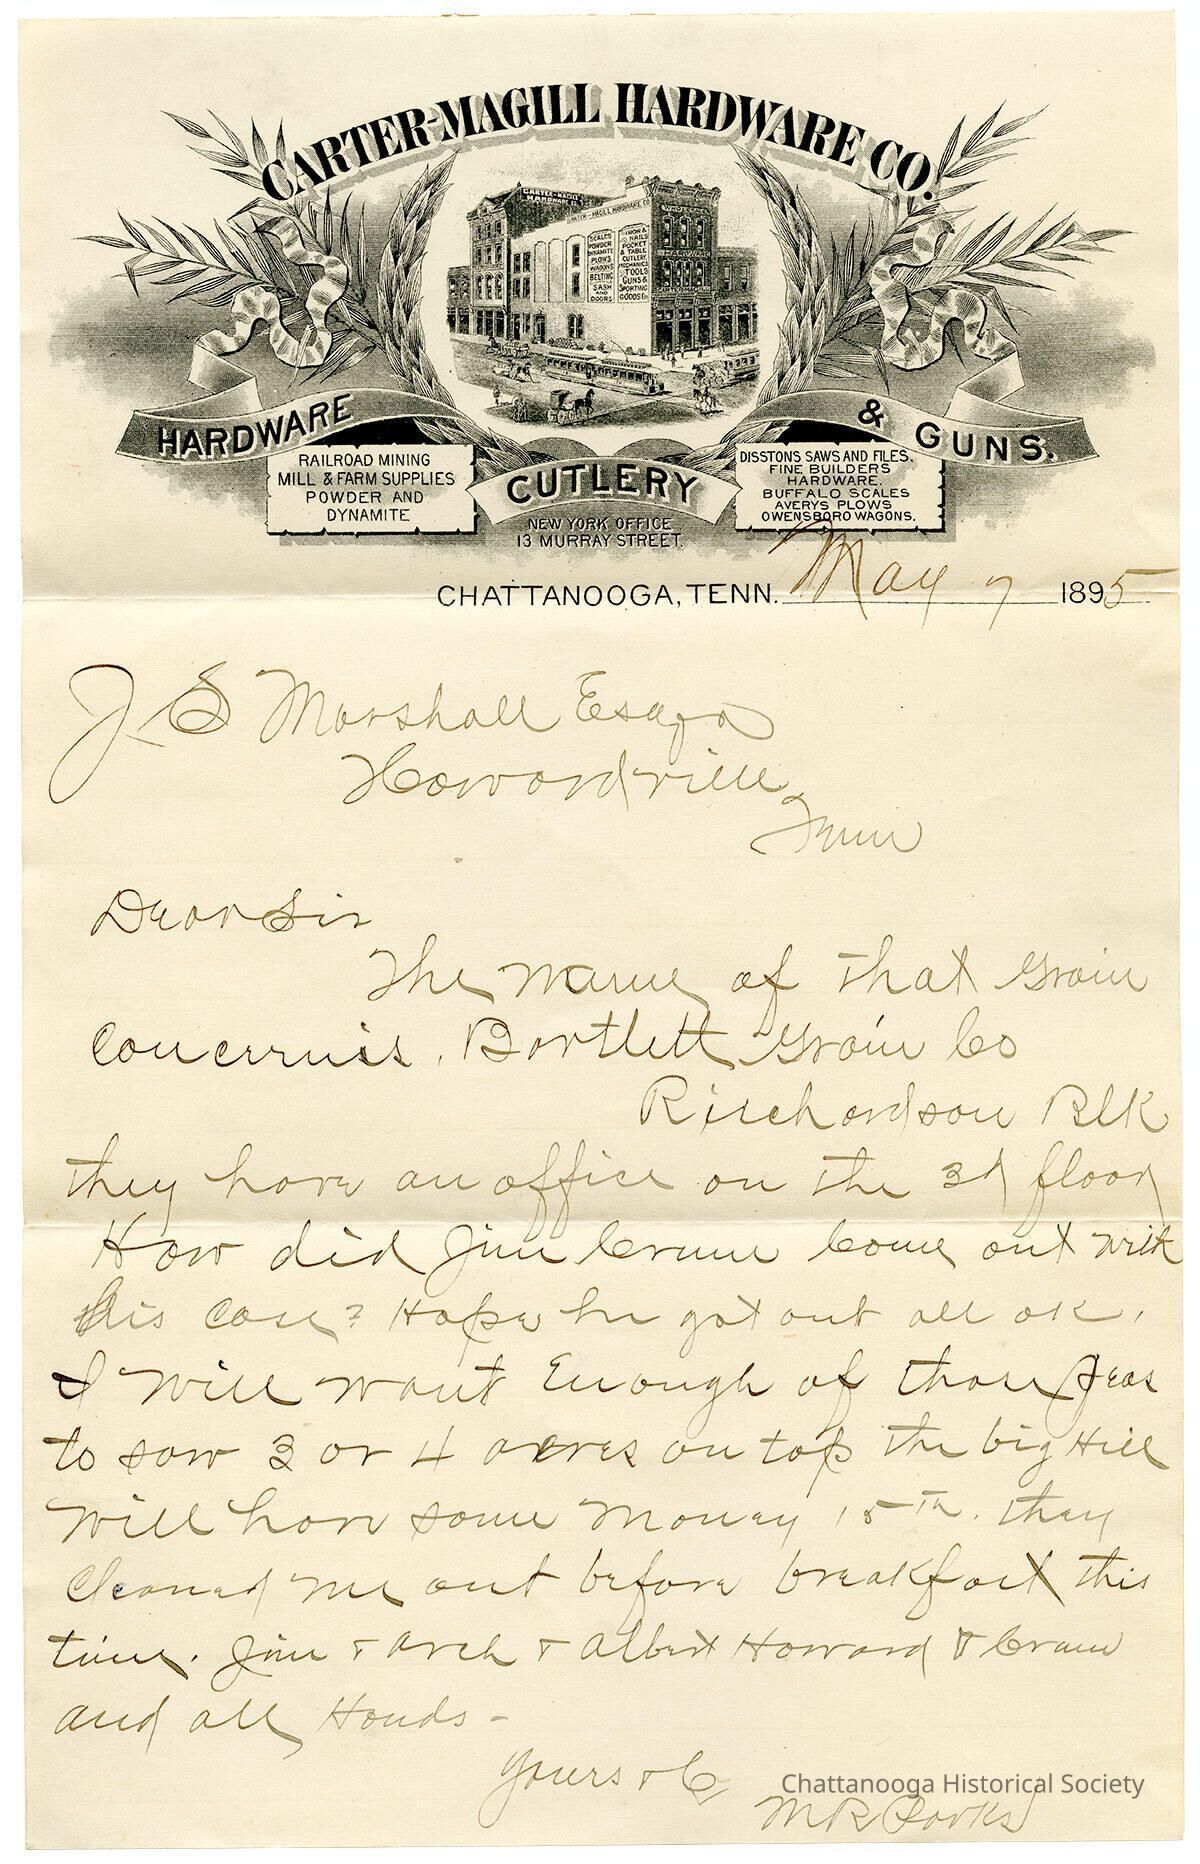 CARTER-MAGILL HARDWARE CO.
CARTER-MAGILL
HARDWARE CO
CARTER-MAGILL HARDWARE CO
SCALES
POWDER
DYNAMITE
PLOWS
WAGONS
BELTING
SASH
AND
DOORS
IRON &
NAILS
POCKET
& TABLE
CUTLERY
MECHANICS
TOOLS
GUNS &
SPORTING
GOODS
HARDWARE
CUTLERY
& GUNS.
RAILROAD MINING
MILL & FARM SUPPLIES
POWDER AND
DYNAMITE
NEW YORK OFFICE
13 MURRAY STREET.
DISSTONS SAWS AND FILES,
FINE BUILDERS
HARDWARE.
BUFFALO SCALES
AVERYS PLOWS
OWENSBORO WAGONS.
CHATTANOOGA, TENN. May 7 1895
J. S Marshall
Howardville
Tenn
Dear Sir
The name of that Grain
Concern is. Bartlett Grain Co
Richardson Blk
they have an office on the 3d floor
How did Jim Crane Come out with
his Case? Hope he got out all ok.
I will want Enough of those peas
to sow 3 or 4 acres on top the big Hill
Will have some money 15th. they
Cleaned me out before breakfast this
time. Jim & Arch & Albert Howard & Crane
and all Hands -
Yours & C
M R Parks
Chattanooga Historical Society